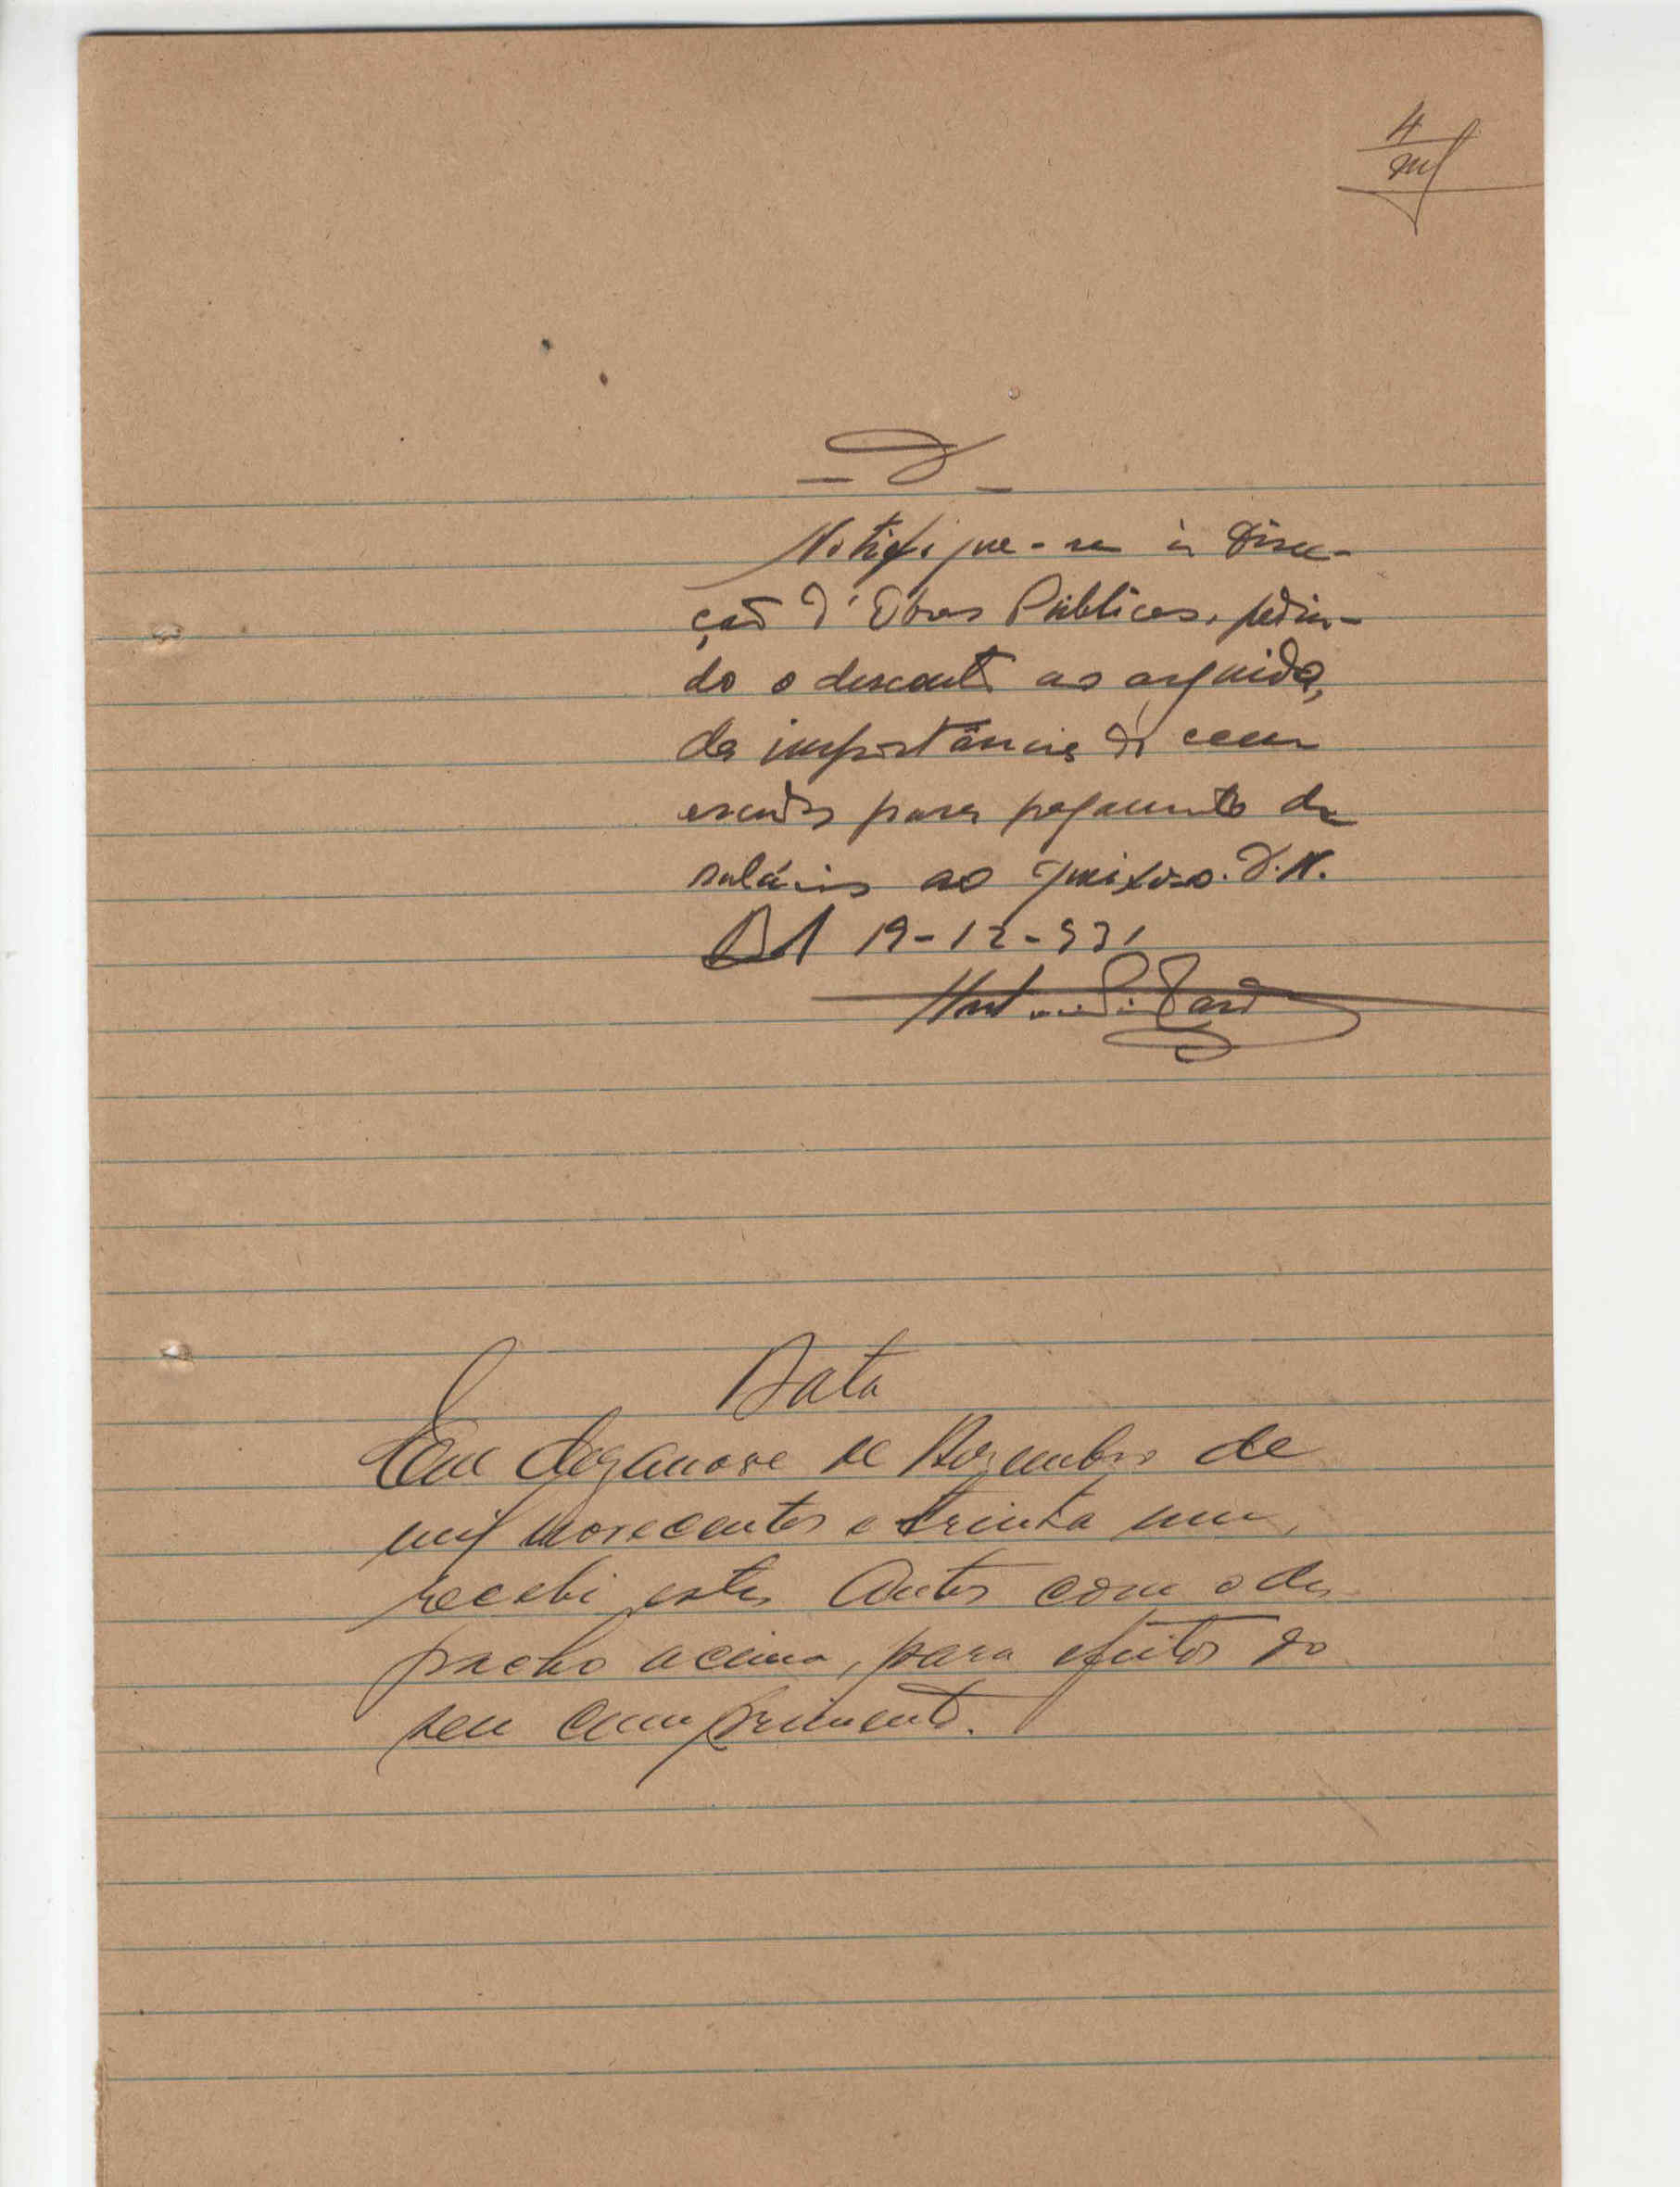 4
D
Notifique-se à Direc-
ção d'Obras Públicas, pedin-
do o desconto ao arguido,
da importância de cem
escudos para pagamento de
salários ao queixoso. D.N.
19-12-931
Data
Em dezanove de Dezembro de
mil novecentos e trinta um,
recebi estes autos com o des
pacho acima, para efeitos do
seu comprimento.